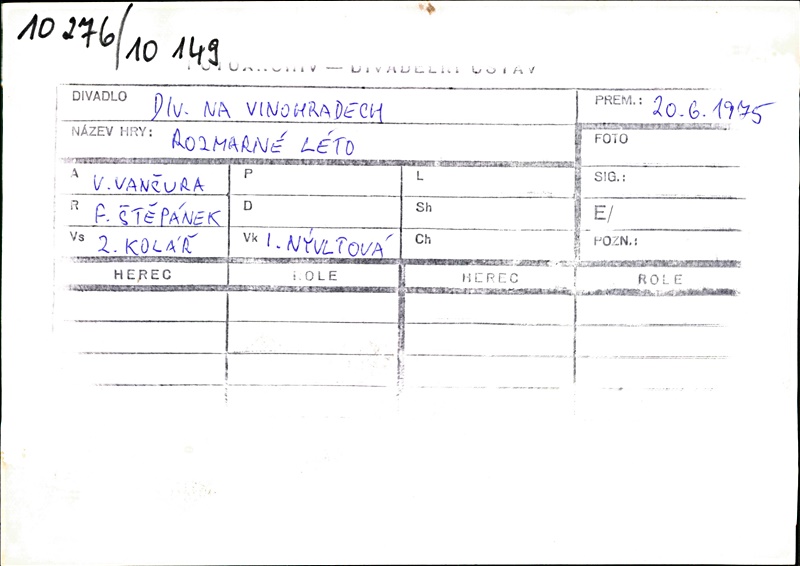 10 276/10 149
FOTOARCHIV — DIVADELNÍ ÚSTAV
DIVADLO DIV. NA VINOHRADECH PREM.: 20.6.1975
NÁZEV HRY: ROZMARNÉ LÉTO FOTO
A V. VANČURA P L SIG.:
R F. ŠTĚPÁNEK D Sh E/
Vs Z. KOLÁŘ Vk I. NÝVLTOVÁ Ch POZN.:
HEREC ROLE HEREC ROLE